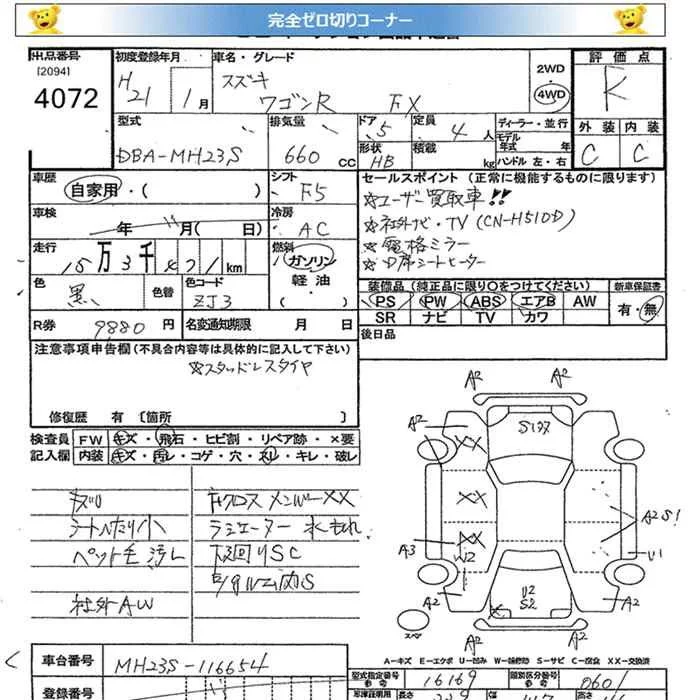 完全ゼロ切りコーナー
出品番号 [2094] 4072
初度登録年月 H21年 1月
車名・グレード スズキ ワゴンR FX
2WD 4WD
評価点 R
外装 C 内装 C
型式 DBA-MH23S
排気量 660 CC
ドア 5 定員 4 人
形状 HB 積載 kg
ディーラー・並行
モデル年式 年
ハンドル 左・右
車歴 自家用・( )
シフト F5
車検 年 月( 日)
冷房 AC
走行 15万3千471km
燃料 ガソリン 軽油・
色 黒 色替 色コード ZJ3
R券 9880 円 名変通知期限 月 日
セールスポイント (正常に機能するものに限ります)
※ユーザー買取車!!
※社外ナビ・TV (CN-H510D)
※電格ミラー
※D席シートヒーター
装備品(純正品に限り○をつけてください) 新車保証書
PS PW ABS エアB AW 有・無
SR ナビ TV カワ
後日品
注意事項申告欄(不具合内容等は具体的に記入して下さい)
※スタッドレスタイヤ
修復歴 有 [箇所 ]
検査員 FW キズ・飛石・ヒビ割・リペア跡・×要
記入欄 内装 キズ・汚れ・コゲ・穴・スレ・キレ・破レ
シートへたり小
ペット毛 汚レ
社外AW
Fクロスメンバー XX
ラジエーター 水もれ
下回りSC
A2 A2
A2 XX S1XX
XX
XX
A3 W2
A2 S1
U1
U2
S2
A2 A2
スペア
A-キズ E-エクボ U-凹み W-補修跡 S-サビ C-腐食 XX-交換済
車台番号 MH23S-116654
型式指定番号 参考 16169 類別区分番号 参考 0601
登録番号